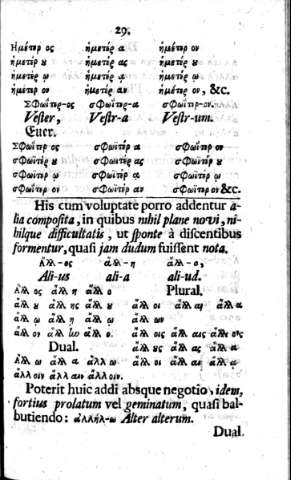 29.
Ἡμέτερ ος ἡμετέρ α ἡμέτερ ον
ἡμετέρ ου ἡμετέρ ας ἡμετέρ ου
ἡμετέρ ῳ ἡμετέρ ᾳ ἡμετέρ ῳ
ἡμέτερ ον ἡμετέρ αν ἡμέτερ ον, &c.
Σφωΐτερ-ος σφωΐτερ-α σφωΐτερ-ον.
Vester, Vestr-a Vestr-um.
Euer.
Σφωΐτερ ος σφωΐτερ α σφωΐτερ ον
σφωϊτέρ ου σφωϊτέρ ας σφωϊτέρ ου
σφωϊτέρ ῳ σφωϊτέρ ᾳ σφωϊτέρ ῳ
σφωΐτερ ον σφωϊτέρ αν σφωΐτερ ον &c.
His cum voluptate porro addentur a-
lia composita, in quibus nihil plane novi, ni-
hilque difficultatis, ut sponte à discentibus
formentur, quasi jam dudum fuissent nota.
ἄλλ-ος ἄλλ-η ἄλλ-ο,
Ali-us ali-a ali-ud.
ἄλλ ος ἄλλ η ἄλλ ο Plural.
ἄλλ ου ἄλλ ης ἄλλ ου ἄλλ οι ἄλλ αι ἄλλ α
ἄλλ ῳ ἄλλ ῃ ἄλλ ῳ ἄλλ ων
ἄλλ ον ἄλλ ην ἄλλ ο. ἄλλ οις ἄλλ αις ἄλλ οις
Dual. ἄλλ ους ἄλλ ας ἄλλ α
ἄλλ ω ἄλλ α ἄλλ ω ἄλλ οι ἄλλ αι ἄλλ α.
ἄλλ οιν ἄλλ αιν ἄλλ οιν.
Poterit huic addi absque negotio, idem,
fortius prolatum vel geminatum, quasi bal-
butiendo: ἀλλήλ-ω Alter alterum.
Dual.